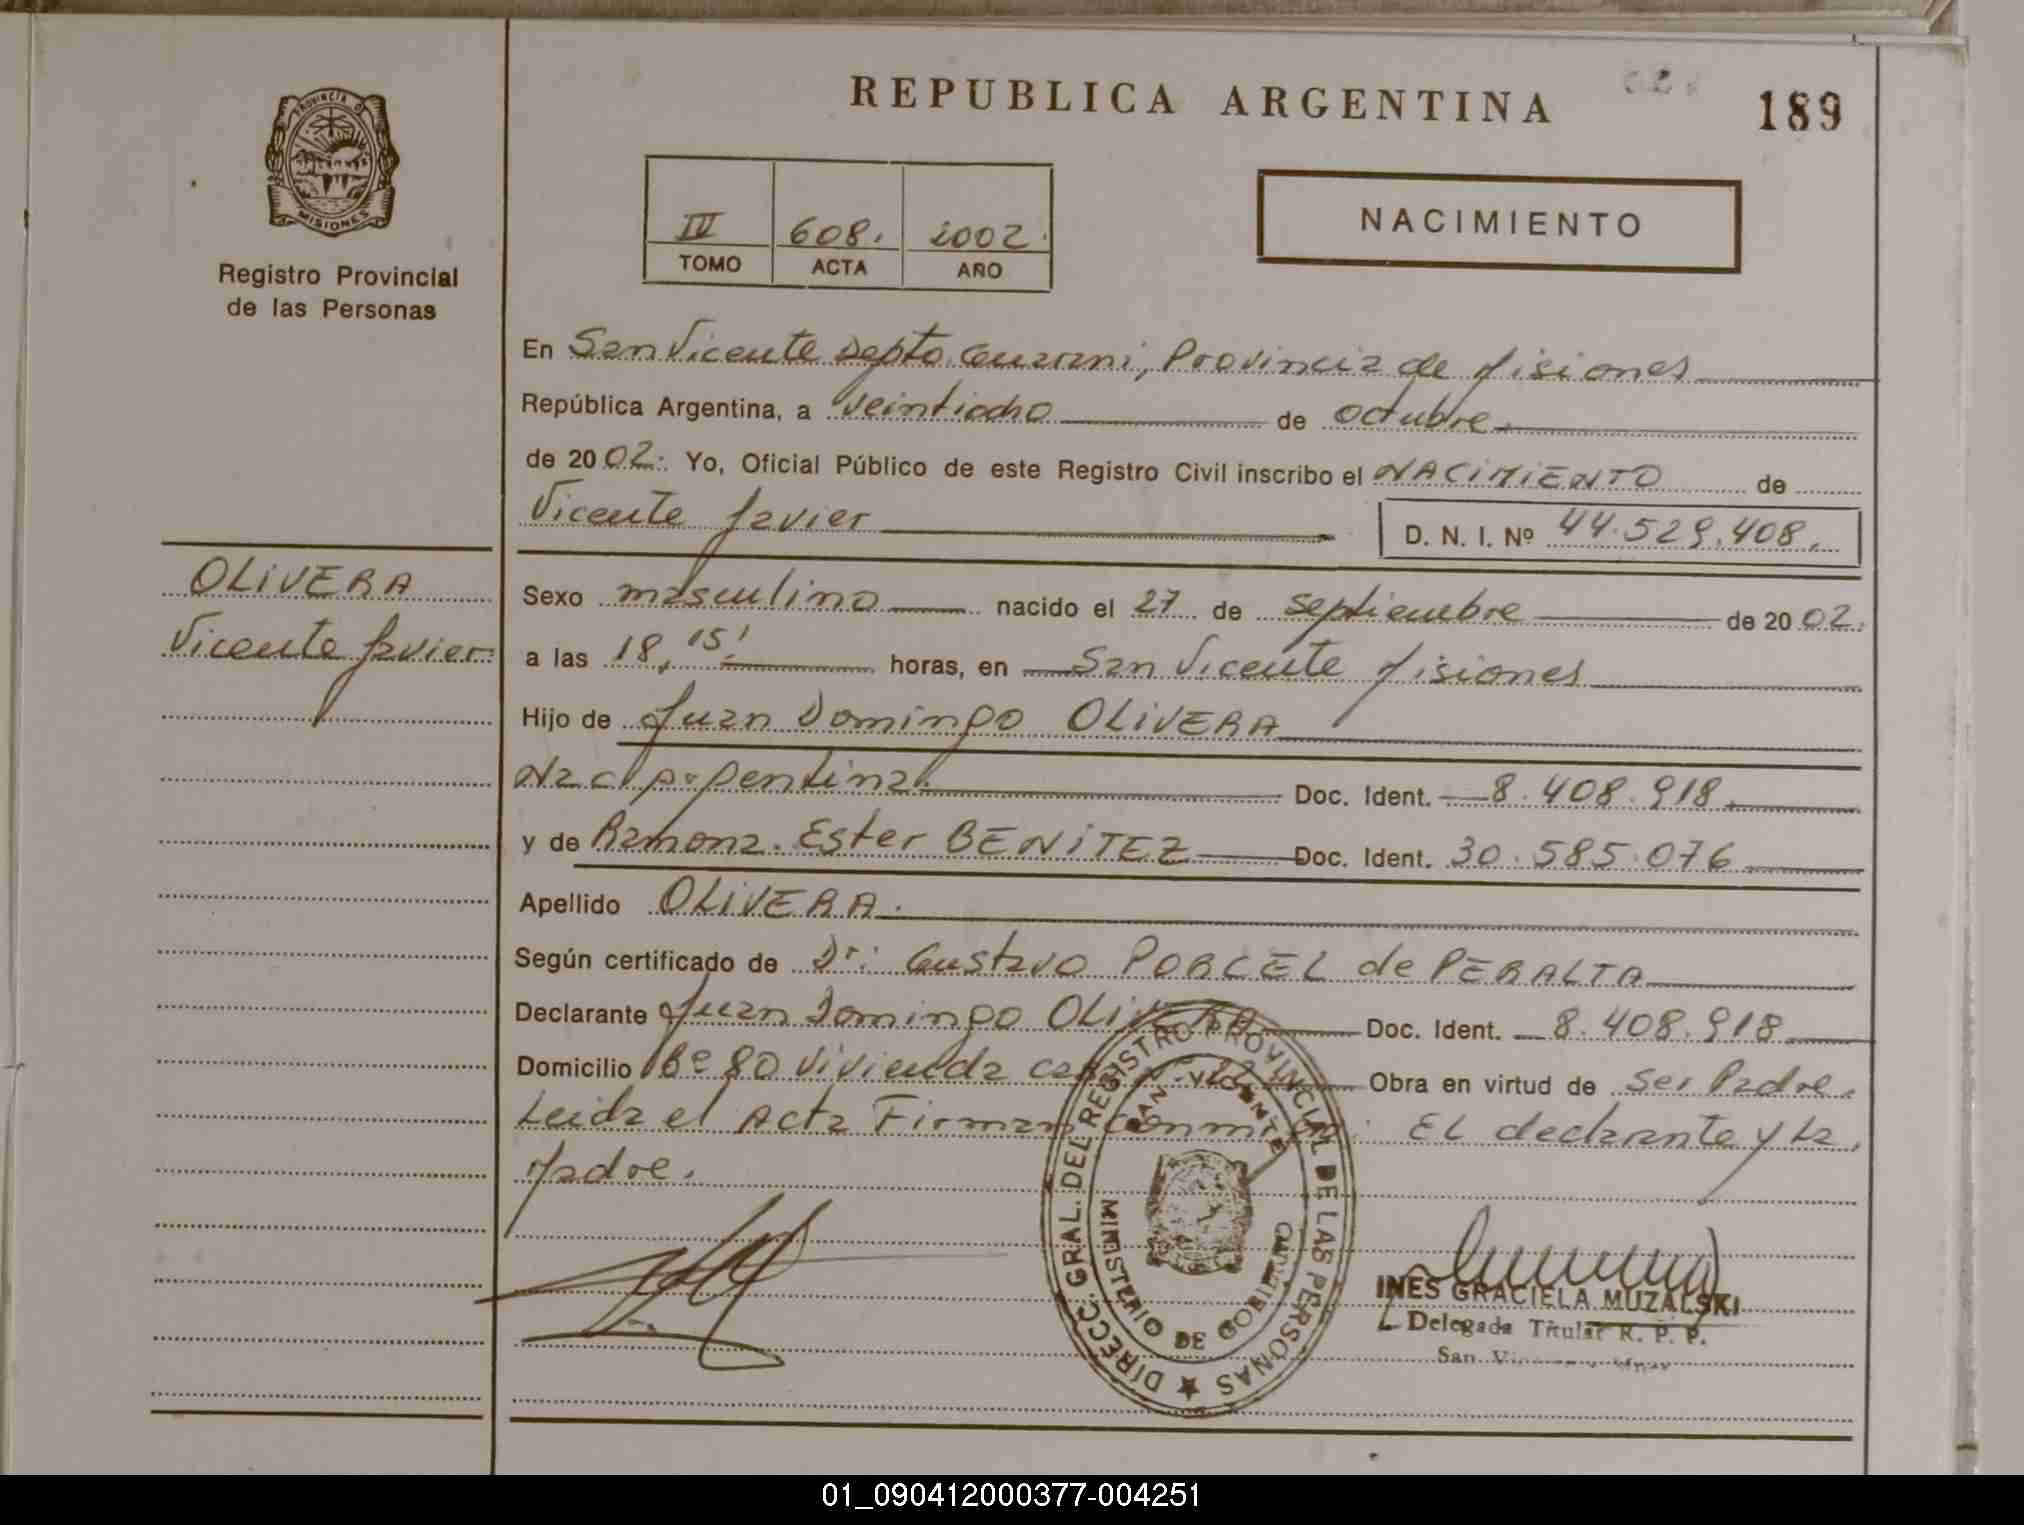 REPUBLICA ARGENTINA
189
PROVINCIA D
MISIONES
Registro Provincial
de las Personas
IV 608. 2002.
TOMO ACTA AÑO
NACIMIENTO
En San Vicente Depto. Guarani, Provincia de Misiones
República Argentina, a veintiocho de octubre.
de 2002. Yo, Oficial Público de este Registro Civil inscribo el NACIMIENTO de
Vicente Javier D. N. I. Nº 44.529.408.
OLIVERA
Vicente Javier
Sexo masculino nacido el 27 de septiembre de 2002.
a las 18,15' horas, en San Vicente Misiones
Hijo de Juan Domingo OLIVERA
Nac Argentina. Doc. Ident. 8.408.918.
y de Ramona Ester BENITEZ Doc. Ident. 30.585.076
Apellido OLIVERA.
Según certificado de Dr. Gustavo PORCEL de PERALTA
Declarante Juan Domingo OLIVERA Doc. Ident. 8.408.918
Domicilio Bº 80 Vivienda Obra en virtud de ser Padre.
Leida el Acta Firman conmigo: EL declarante y La
Madre.
DIRECC. GRAL. DEL REGISTRO PROVINCIAL DE LAS PERSONAS
SAN VICENTE
MINISTERIO DE GOBIERNO
INES GRACIELA MUZALSKI
Delegada Titular R. P. P.
San
01_090412000377-004251